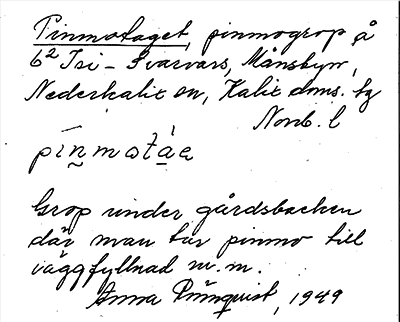 Pinmotaget, pinmogrop å
6² Tri - Svarvars, Månsbyn,
Nederkalix sn, Kalix doms. hg
Norrb. l
pinmotáa
Grop under gårdsbacken
där man tar pinmo till
väggfyllnad m.m.
Anna Rönnquist, 1949